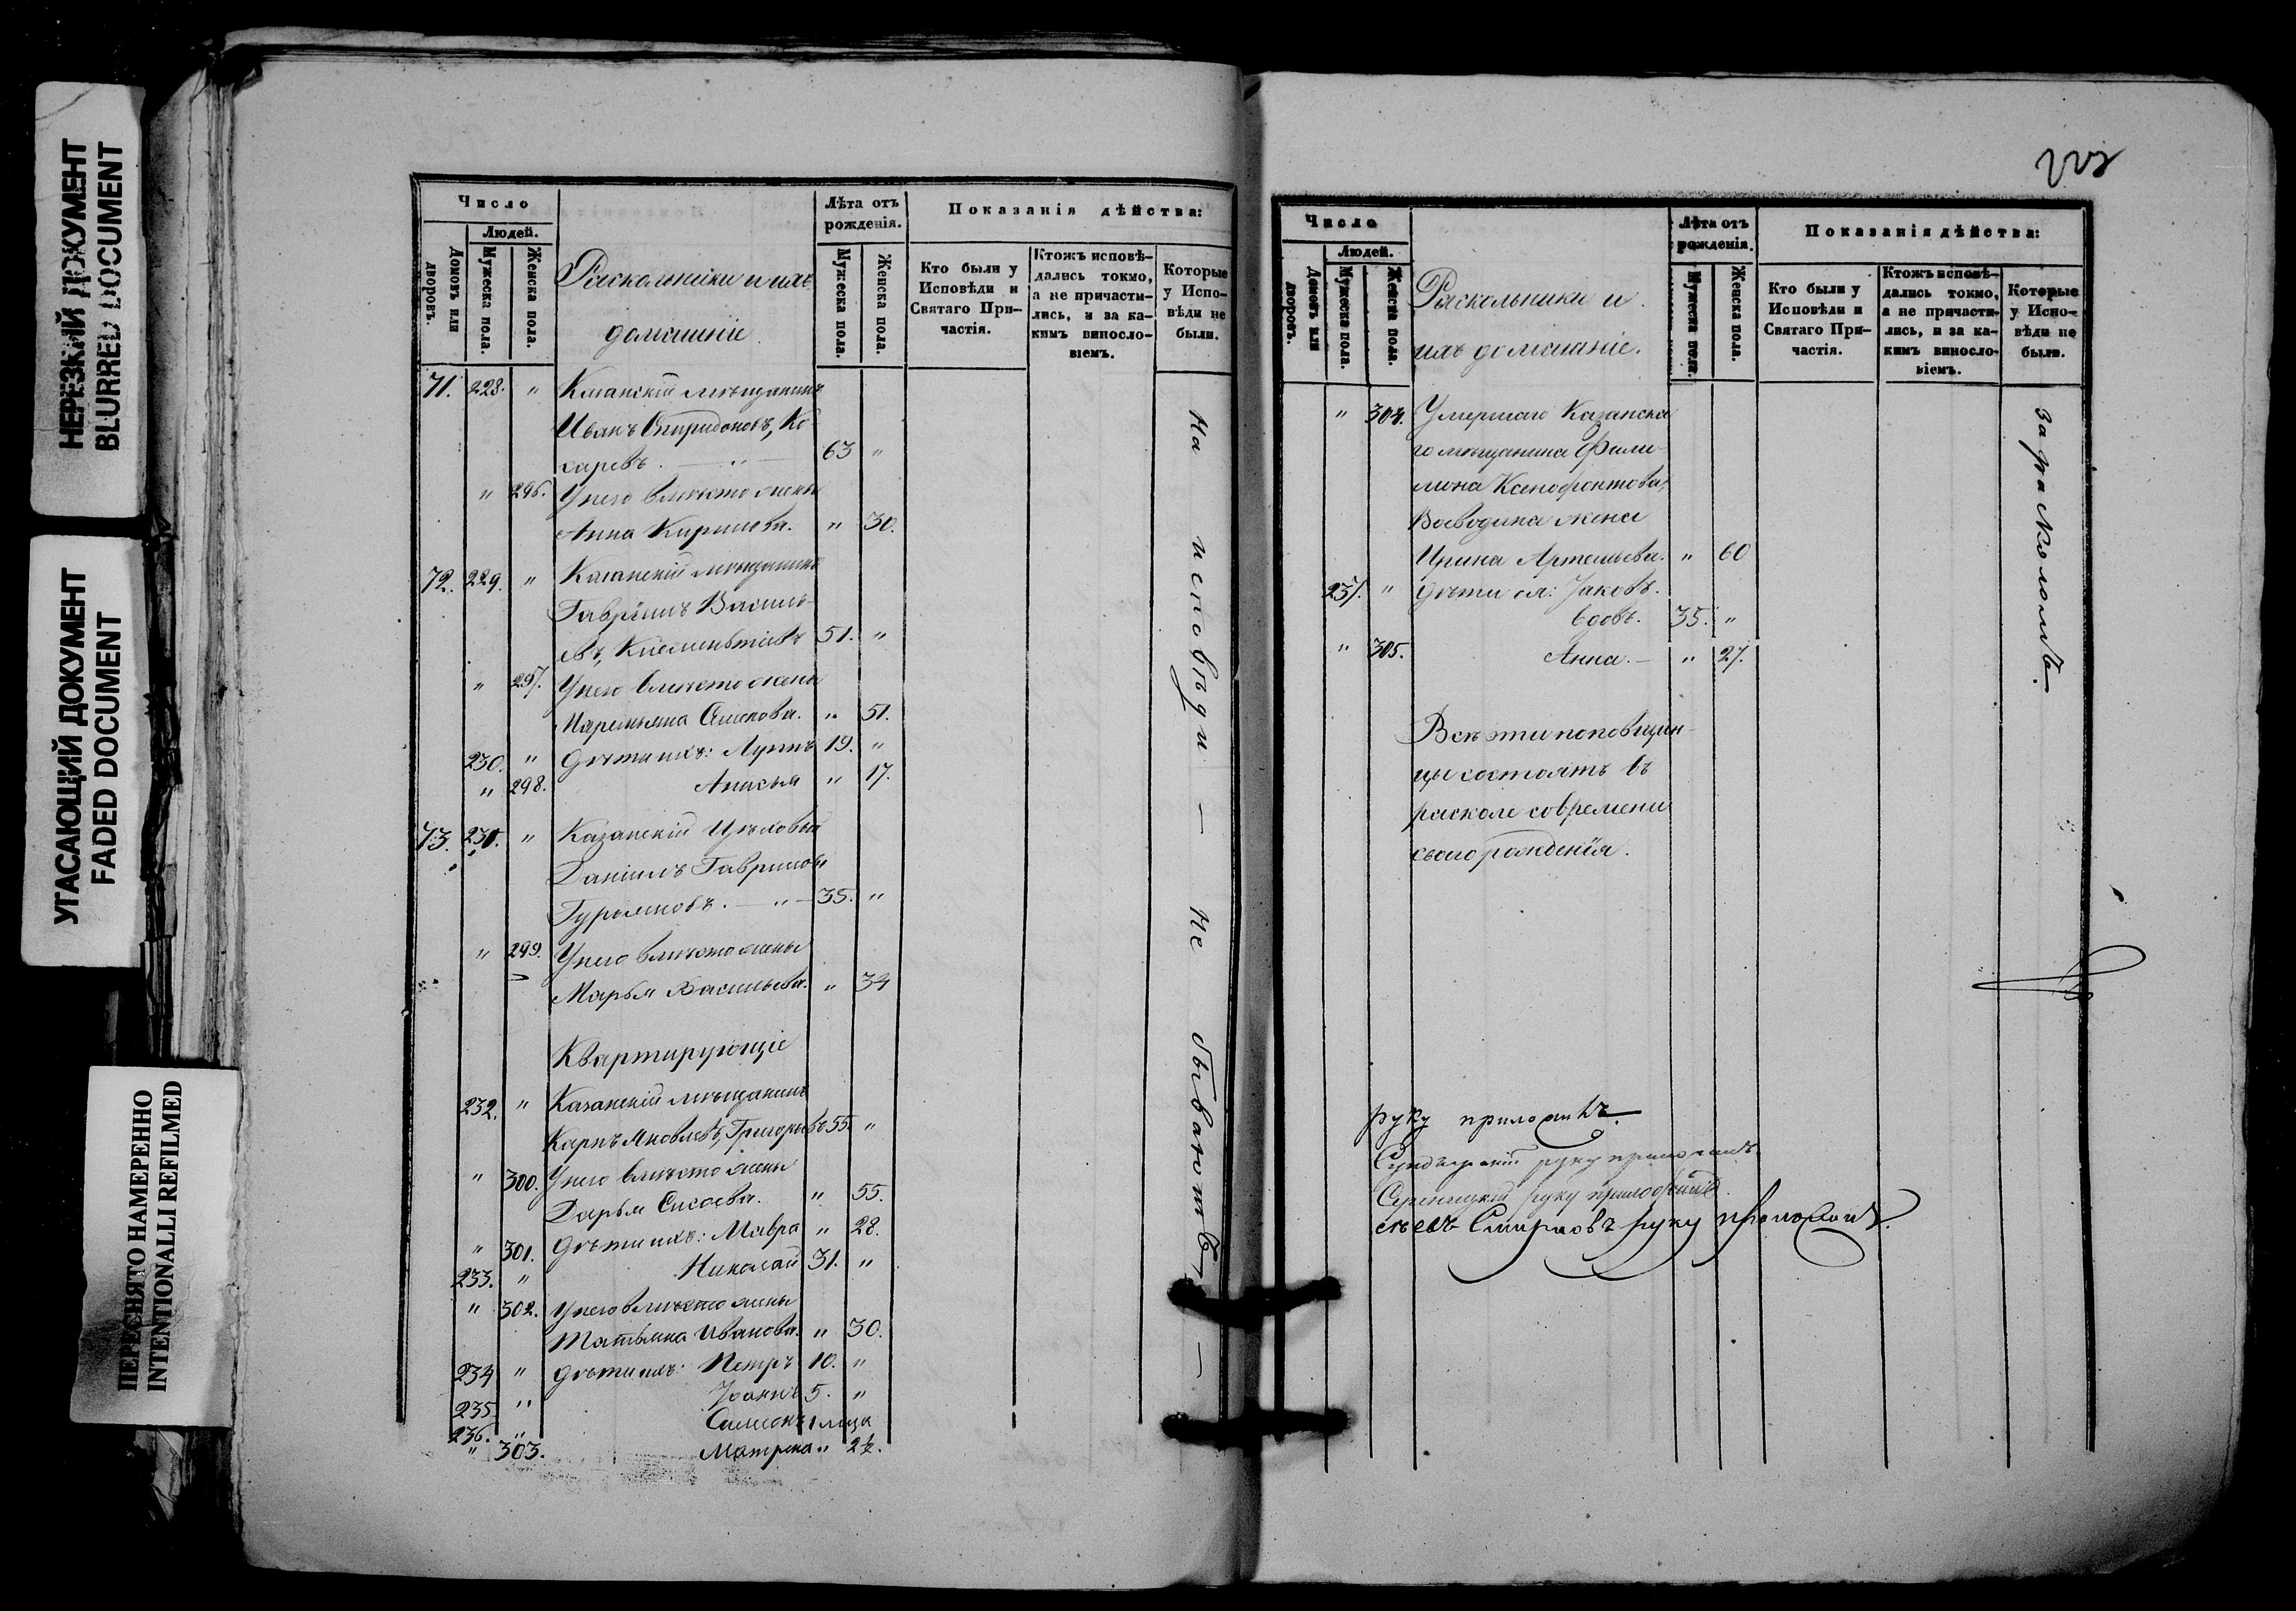 НЕРЕЗКИЙ ДОКУМЕНТ
BLURRED DOCUMENT
УГАСАЮЩИЙ ДОКУМЕНТ
FADED DOCUMENT
ПЕРЕСНЯТО НАМЕРЕННО
INTENTIONALLI REFILMED
Число
Людей.
Домовъ или дворовъ.
Мужеска пола.
Женска пола.
Раскольники и ихъ
домашніе
Лѣта отъ рожденія.
Мужеска пола.
Женска пола.
Показанія дѣйства:
Кто были у Исповѣди и Святаго Причастія.
Ктожъ исповѣдались токмо, а не причастились, и за какимъ винословіемъ.
Которые у Исповѣди не были.
71. 228. " Казанскій мѣщанинъ
Иванъ Спиридоновъ, Ко-
саревъ. — " — 63 "
" 296. У него вмѣсто жены
Анна Кирилова. " 30.
72. 229. " Казанскій мѣщанинъ
Гавріилъ Василь-
евъ, 51. "
" 297. У него вмѣсто жены
Маремьяна Семенова. " 51.
230. " Дѣти ихъ: Луппъ 19. "
" 298. Анисья " 17.
73. 231. " Казанскій Цѣховый
Даніилъ Гавриловъ
— " — 35. "
" 299. У него вмѣсто жены
Марья Васильева. " 34
Квартирующіе
232. " Казанскій мѣщанинъ
Карпъ Яковлевъ, Григорьевъ 55. "
" 300. У него вмѣсто жены
Дарья Сисоева. " 55.
" 301. Дѣти ихъ: Мавра " 28.
233. " Николай 31. "
" 302. У него вмѣсто жены
Татьяна Иванова. " 30.
234 " Дѣти ихъ: Петръ 10. "
235. " Іоаннъ 5. "
236. " Симеонъ 1 мѣсяца
" 303. Матрена " 2½.
На исповѣди — не бываютъ —
Число
Людей.
Домовъ или дворовъ.
Мужеска пола
Женска пола.
Раскольники и
ихъ домашніе.
Лѣта отъ рожденія.
Мужеска пола.
Женска пола.
Показанія дѣйства:
Кто были у Исповѣди и Святаго Причастія.
Ктожъ исповѣдались токмо, а не причастились, и за какимъ винословіемъ.
Которые у Исповѣди не были.
" 304. Умершаго Казанска-
го мѣщанина Фили-
мона Ксенофонтова,
Воеводина жена
Ирина Артемьева. " 60
237. " Дѣти ея: Іаковъ.
вдовъ. 35. "
" 305. Анна. — " 27.
Всѣ эти поповщин-
цы состоятъ въ
расколе со времени
своего рожденія.
За расколомъ.
руку приложилъ.
руку приложилъ
руку приложилъ
Смирновъ руку приложилъ.